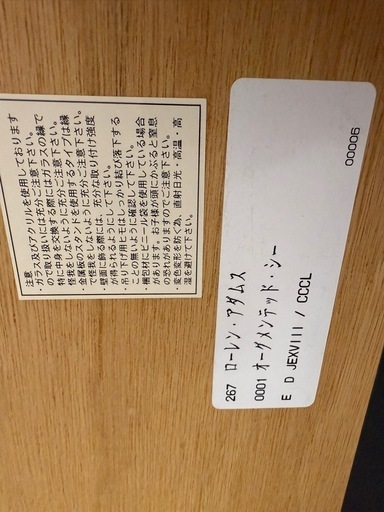 注意
ガラス及びアクリルを使用しております
ので取り扱いには充分ご注意下さい。
・特に中身を交換する際にはガラスの縁で
怪我をしないように充分ご注意下さい。
・金属板のスタンドを使用するタイプは縁
で怪我をしないように充分ご注意下さい。
・壁面に飾る際には、充分な取り付け強度
が得られるようにして下さい。
・吊り下げ用ヒモはしっかり結び落下する
ことの無いように確認して下さい。
・梱包材にビニール袋を使用している場合
があります。お子様が頭にかぶると窒息
の恐れがありますのでご注意下さい。
・変色変形を防ぐ為、直射日光・高温・高
湿を避けて下さい。
267 ローレン・アダムス
0001 オーグメンテッド・シー
E D JEXVIII / CCCL
00006